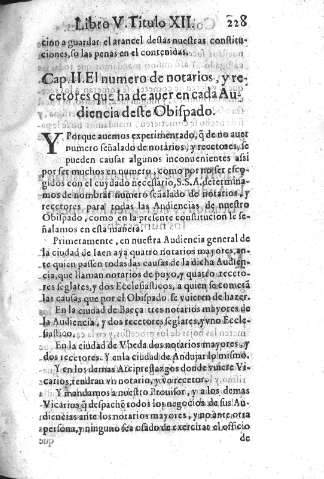 Libro V. Titulo XII. 228
cino a guardar el arancel destas nuestras constitu-
ciones, so las penas en el contenidas.
Cap. II. El numero de notarios, y re-
cetores que ha de auer en cada Au-
diencia deste Obispado.
Y Porque auemos experimentado, q̃ de no auer
numero señalado de notarios, y recetores, se
pueden causar algunos inconuenientes assi
por ser muchos en numero, como por no ser esco-
gidos con el cuydado necessario, S.S.A. determina-
mos de nombrar numero señalado de notarios, y
recetores para todas las Audiencias de nuestro
Obispado, como en la presente constitucion le se-
ñalamos en esta manera.
Primeramente, en nuestra Audiencia general de
la ciudad de Iaen aya quatro notarios mayores, an-
te quien passen todas las causas de la dicha Audien-
cia, que llaman notarios de poyo, y quatro receto-
res seglares, y dos Ecclesiasticos, a quien se cometã
las causas que por el Obispado se vuieren de hazer.
En la ciudad de Baeça tres notarios mayores de
la Audiencia, y dos recetores seglares, y vno Eccle-
siastico.
En la ciudad de Vbeda dos notarios mayores, y
dos recetores. Y en la ciudad de Andujar lo mismo.
Y en los demas Arciprestazgos donde vuiere Vi-
carios, tendran vn notario, y vn recetor.
Y mandamos a nuestro Prouisor, y a los demas
Vicarios q̃ despachẽ todos los negocios de sus Au-
diencias ante los notarios mayores, y no ante otra
persona, y ninguno sea osado de exercitar el officio
de